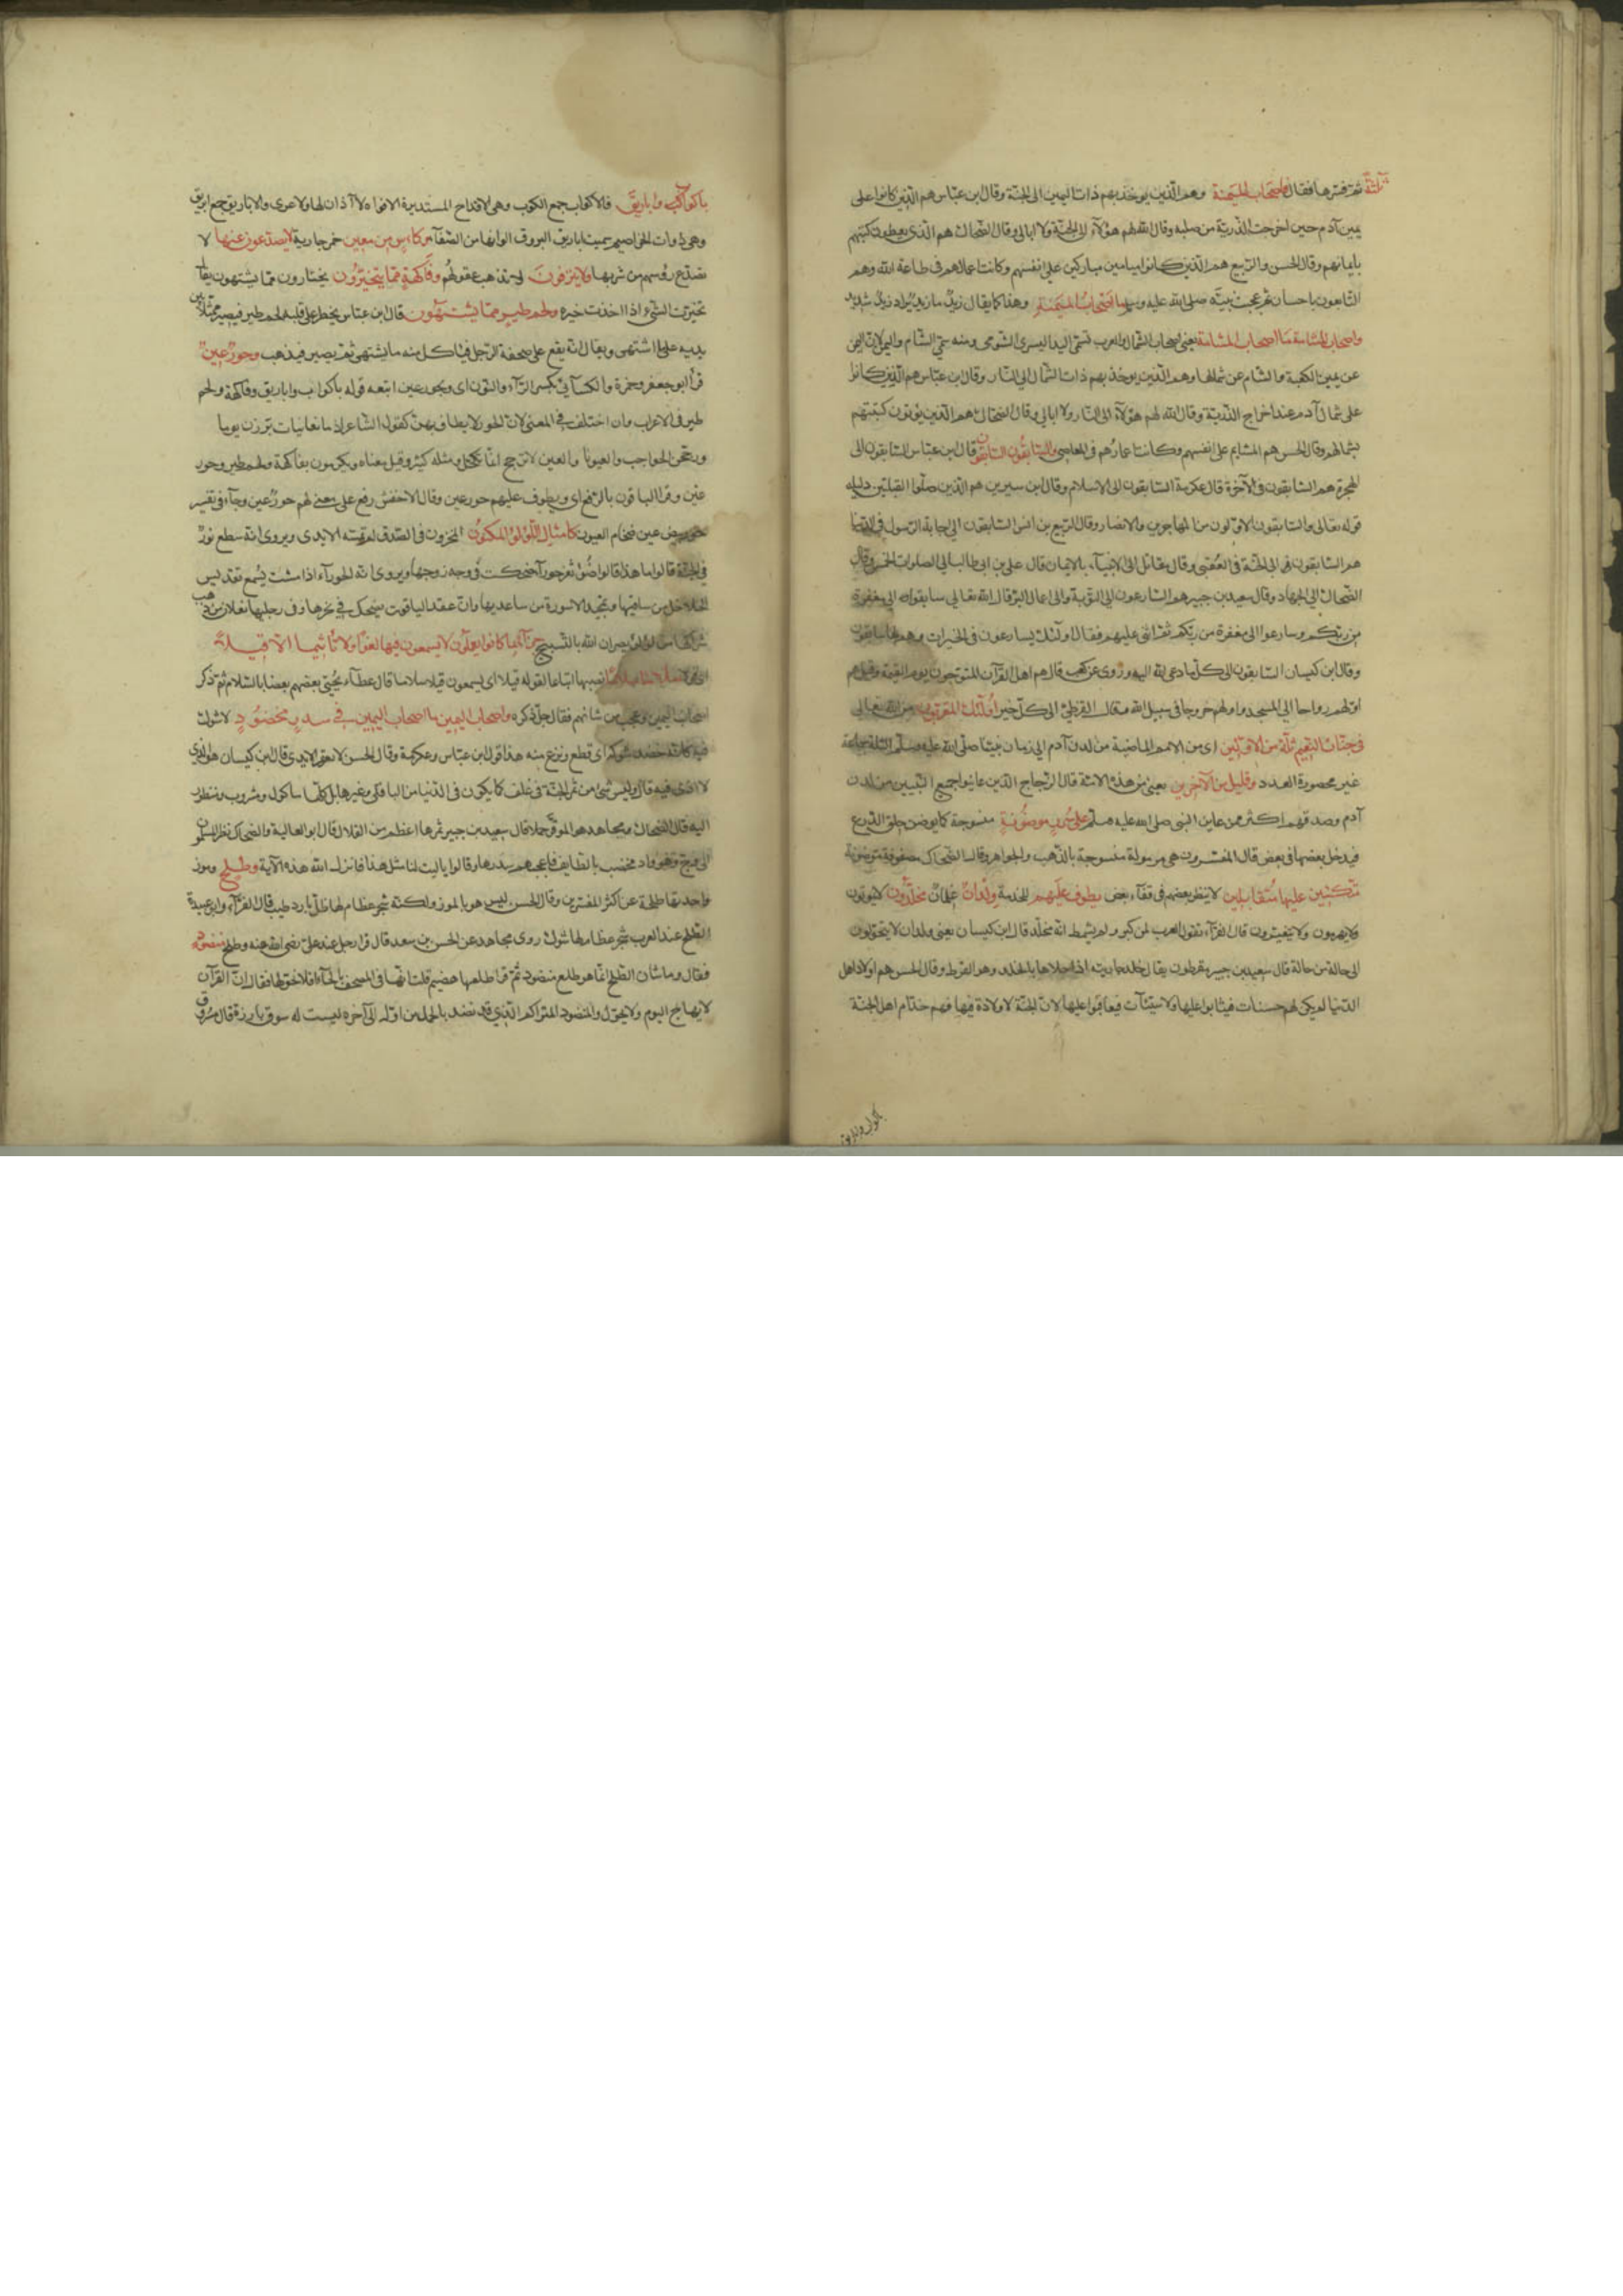 ثلثة ثم فسرها فقال فاصحاب الميمنة وهم الذين يوخذ بهم ذات اليمين الى الجنة وقال ابن عباس هم الذين كانوا على
يمين آدم حين اخرجت الذرية من صلبه وقال الله لهم هؤلآء الى الجنة ولا ابالى وقال الضحاك هم الذى يعطون كتبهم
بايمانهم وقال الحسن والربيع هم الذين كانوا ميامين مباركين على انفسهم وكانت اعمالهم فى طاعة الله وهم
التابعون باحسان ثم عجب نبيه صلى الله عليه وسلم ما اصحاب الميمنة وهذا كما يقال زيد ما زيد يراد زيد شديد
واصحاب المشأمة ما اصحاب المشأمة يعنى اصحاب الشمال والعرب تسمى اليد اليسرى الشومى ومنه سمى الشام واليمن لان اليمن
عن يمين الكعبة والشام عن شمالها وهم الذين يوخذ بهم ذات الشمال الى النار وقال ابن عباس هم الذين كانوا
على شمال آدم عند اخراج الذرية وقال الله لهم هؤلآء الى النار ولا ابالى وقال الضحاك هم الذين يؤتون كتبهم
بشمالهم وقال الحسن هم المشايم على انفسهم وكانت اعمارهم فى المعاصى والسابقون السابقون قال ابن عباس السابقون الى
الهجرة هم السابقون فى الآخرة قال عكرمة السابقون الى الاسلام وقال ابن سيرين هم الذين صلوا القبلتين دليله
قوله تعالى والسابقون الاولون من المهاجرين والانصار وقال الربيع بن انس السابقون الى اجابة الرسول فى الدنيا
هم السابقون الى الجنة فى العقبى وقال مقاتل الى الانبيآء بالايمان قال على بن ابى طالب الى الصلوات الخمس وقال
الضحاك الى الجهاد وقال سعيد بن جبير هم المسارعون الى التوبة والى اعمال البر قال الله تعالى سابقوا الى مغفرة
من ربكم وسارعوا الى مغفرة من ربكم ثم اثنى عليهم فقال اولئك يسارعون فى الخيرات وهم لها سابقون
وقال ابن كيسان السابقون الى كل ما دعى الله اليه وروى عن كعب قال هم اهل القرآن المتوجون يوم القيمة وقيل هم
اولهم رواحا الى المسجد واولهم خروجا فى سبيل الله وقال القرظى الى كل خير اولئك المقربون من الله تعالى
فى جنات النعيم ثلة من الاولين اى من الامم الماضية من لدن آدم الى زمان نبينا صلى الله عليه وسلم الثلة جماعة
غير محصورة العدد وقليل من الآخرين يعنى من هذه الامة قال الزجاج الذين عاينوا جميع النبيين من لدن
آدم وصدقوهم اكثر ممن عاين النبى صلى الله عليه وسلم على سرر موضونة منسوجة كما يوضن حلق الدرع
فيدخل بعضها فى بعض قال المفسرون هى مرمولة منسوجة بالذهب والجواهر وقال الضحاك مصفوفة موضونة
متكئين عليها متقابلين لا ينظر بعضهم فى قفآء بعض يطوف عليهم للخدمة ولدان غلمان مخلدون لا يموتون
ولا يهرمون ولا يتغيرون قال الفرآء تقول العرب لمن كبر ولم يشمط انه مخلد قال ابن كيسان يعنى ولدان لا يتحولون
الى حالة من حالة قال سعيد بن جبير مقرطون يقال خلد جاريته اذا حلاها بالخلد وهو القرط وقال الحسن هم اولاد اهل
الدنيا لم يكن لهم حسنات فيثابوا عليها ولا سيئات فيعاقبوا عليها لان الجنة لا ولادة فيها فهم خدام اهل الجنة
باكواب واباريق
باكواب واباريق فالاكواب جمع الكوب وهى الاقداح المستديرة الافواه لا آذان لها ولا عرى والاباريق جمع ابريق
وهى ذوات الخراطيم سميت اباريق لبروق الوانها من الصفآء وكأس من معين خمر جارية لا يصدعون عنها لا
تصدع رؤسهم من شربها ولا ينزفون اى لا تذهب عقولهم وفاكهة مما يتخيرون يختارون مما يشتهون يقال
تخيرت الشىء اذا اخذت خيره ولحم طير مما يشتهون قال ابن عباس يخطر على قلبه لحم طير فيصير ممثلا بين
يديه على ما اشتهى ويقال انه يقع على صحفة الرجل فياكل منه ما يشتهى ثم يصير فيذهب وحور عين
قرأ ابو جعفر وحمزة والكسآئى بكسر الرآء والنون اى وبحور عين اتبعه قوله باكواب واباريق وفاكهة ولحم
طير فى الاعراب وان اختلف فى المعنى لان الحور لا يطاف بهن كقول الشاعر اذا ما الغانيات برزن يوما
وزججن الحواجب والعيونا والعين لا تزجج انما تكحل ومثله كثير وقيل معناه ويكرمون بفاكهة ولحم طير وحور
عين وقرأ الباقون بالرفع اى ويطوف عليهم حور عين وقال الاخفش رفع على معنى لهم حور عين وجآء فى تفسير
حور بيض عين ضخام العيون كامثال اللؤلؤ المكنون المخزون فى الصدف لم تمسه الايدى ويروى انه سطع نور
فى الجنة قالوا ما هذا قالوا ضوء ثغر حورآء ضحكت فى وجه زوجها ويروى انه الحورآء اذا مشت يسمع تقديس
الخلاخل من ساقيها وتمجيد الاسورة من ساعديها وان عقد الياقوت يضحك فى نحرها وفى رجليها نعلان من ذهب
شراكهما من لؤلؤ يصران الله بالتسبيح جزآء بما كانوا يعملون لا يسمعون فيها لغوا ولا تاثيما الا قيلا
سلاما سلاما نصبها اتباعا لقوله قيلا اى يسمعون قيلا سلاما قال عطآء يحيى بعضهم بعضا بالسلام ثم ذكر
اصحاب اليمين وعجب من شانهم فقال جل ذكره واصحاب اليمين ما اصحاب اليمين فى سدر مخضود لا شوك
فيه كانه خضد شوكه اى قطع ونزع منه هذا قول ابن عباس وعكرمة وقال الحسن لا يعقر الايدى قال ابن كيسان هو الذى
لا اذى فيه قال وليس شئ من ثمر الجنة فى غلف كما يكون فى الدنيا من الباقلى وغيرها بل كلها ماكول ومشروب ومنظور
اليه قال الضحاك ومجاهد هو الموقر حملا قال سعيد بن جبير ثمرها اعظم من القلال قال ابو العالية والضحاك نظر المسلمون
الى وج وهو واد مخصب بالطايف فاعجبهم سدرها وقالوا يا ليت لنا مثل هذا فانزل الله هذه الآية وطلح وموز
واحدتها طلحة عن اكثر المفسرين وقال الحسن ليس هو بالموز ولكنه شجر عظام لها ظل بارد طيب قال الفرآء وابو عبيدة
الطلح عند العرب شجر عظام لها شوك روى مجاهد عن الحسن بن سعد قال قرا رجل عند على رضى الله عنه وطلح منضود
فقال وما شان الطلح انما هو طلع منضود ثم قرا طلعها هضيم قلت انها فى المصحف بالحآء افلا نحولها فقال ان القرآن
لا يهاج اليوم ولا يحول والمنضود المتراكم الذى قد نضد بالحمل من اوله الى آخره ليست له سوق بارزة قال مسروق